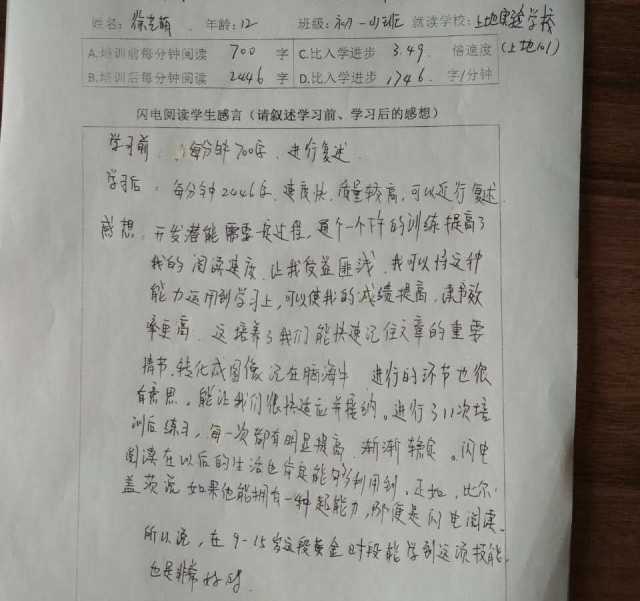 姓名：徐 萌 年龄：12 班级：初一四班 就读学校：上地实验学校
A.培训前每分钟阅读 700 字 C.比入学进步 3.49 倍速度 (上地101)
B.培训后每分钟阅读 2446 字 D.比入学进步 1746 字/分钟
闪电阅读学生感言（请叙述学习前、学习后的感想）
学习前：每分钟700字，进行复述
学习后：每分钟2446字，速度快，质量较高，可以进行复述
感想：开发潜能需要一定过程，通个一个下午的训练提高了
我的阅读速度，让我受益匪浅，我可以将这种
能力运用到学习上，可以使我的成绩提高，读书效
率更高，这培养了我们能快速记住文章的重要
情节，转化成图像记在脑海中 进行的环节也很
有意思，能让我们很快适应并接纳。进行了11次培
训后练习，每一次都有明显提高，渐渐稳定。闪电
阅读在以后的生活也肯定能够利用到，正如，比尔·
盖茨说如果他能拥有一种超能力，那便是闪电阅读。
所以说，在9-15岁这段黄金时段能学到这项技能，
也是非常好的